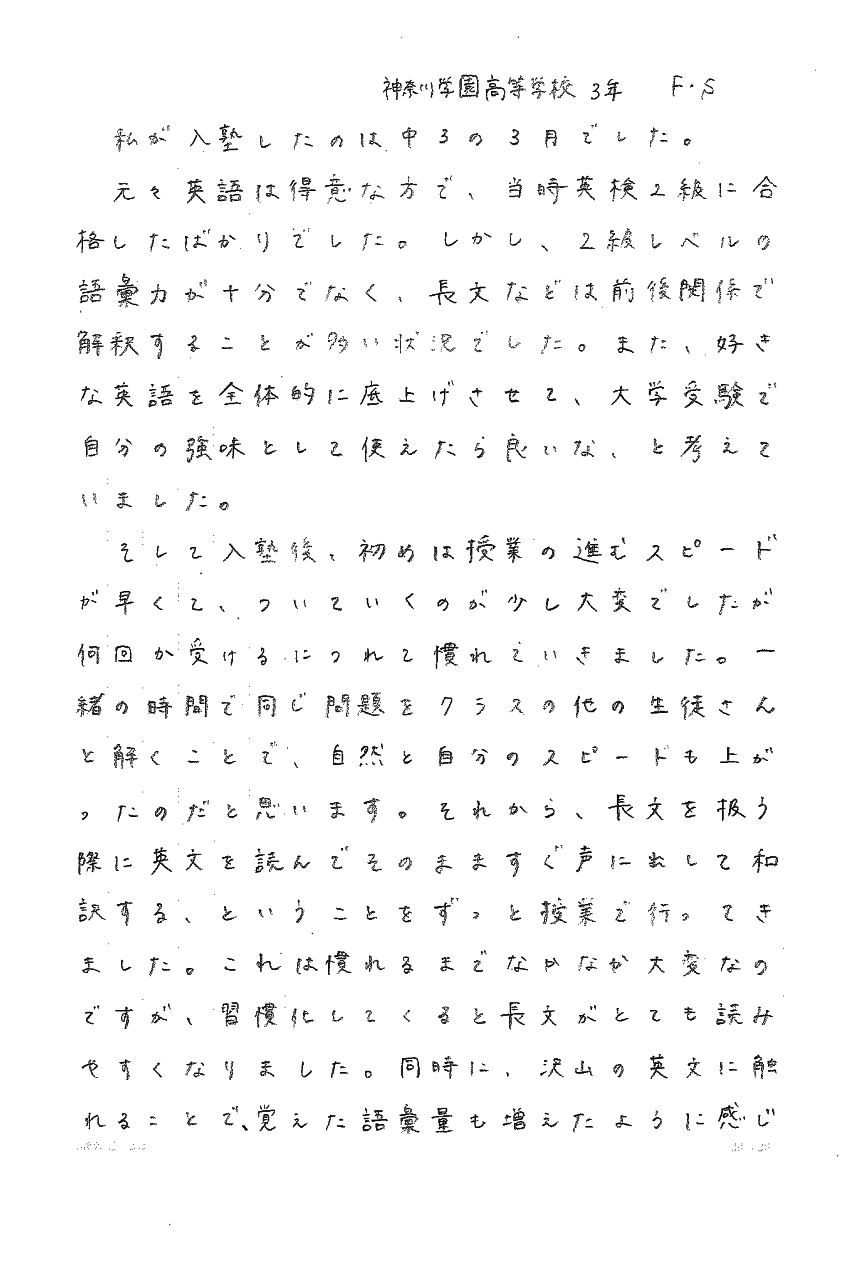 神奈川学園高等学校 3年 F・S
私が入塾したのは中3の3月でした。
元々英語は得意な方で、当時英検2級に合
格したばかりでした。しかし、2級レベルの
語彙力が十分でなく、長文などは前後関係で
解釈することが多い状況でした。また、好き
な英語を全体的に底上げさせて、大学受験で
自分の強味として使えたら良いな、と考えて
いました。
そして入塾後、初めは授業の進むスピード
が早くて、ついていくのが少し大変でしたが
何回か受けるにつれて慣れていきました。一
緒の時間で同じ問題をクラスの他の生徒さん
と解くことで、自然と自分のスピードも上が
ったのだと思います。それから、長文を扱う
際に英文を読んでそのまますぐ声に出して和
訳する、ということをずっと授業で行ってき
ました。これは慣れるまでなかなか大変なの
ですが、習慣化してくると長文がとても読み
やすくなりました。同時に、沢山の英文に触
れることで、覚えた語彙量も増えたように感じ